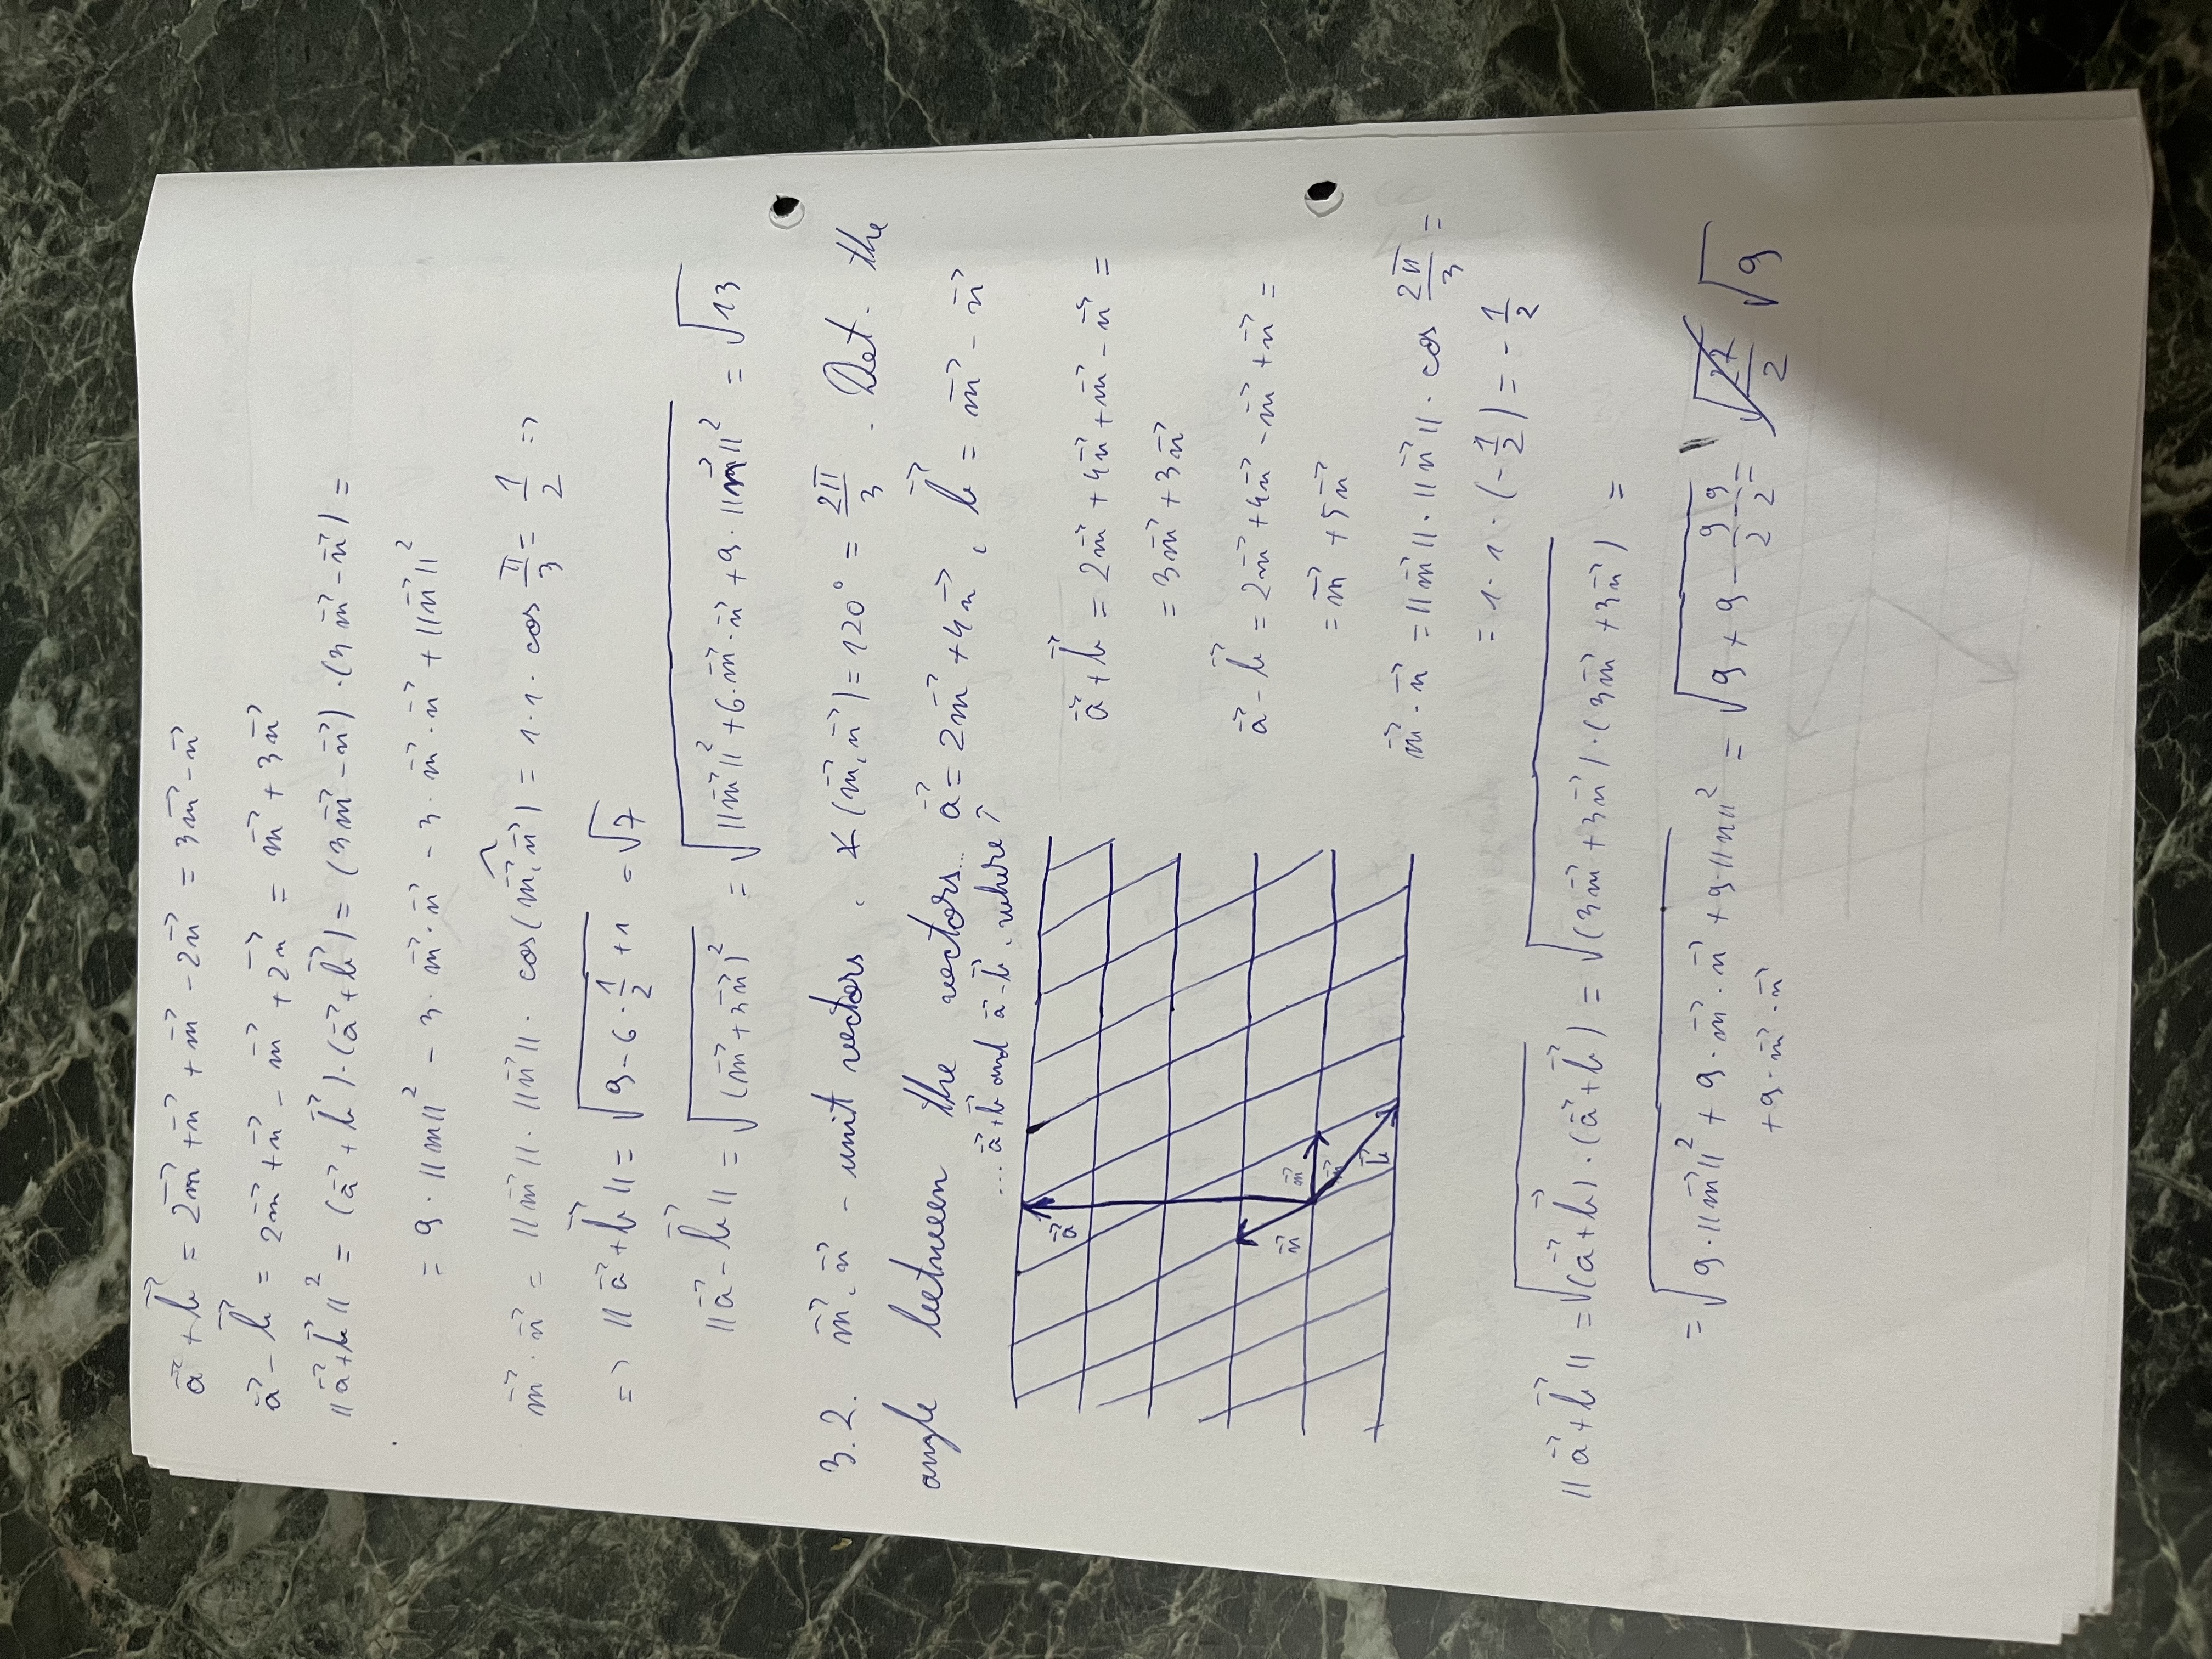 a⃗ + b⃗ = 2m⃗ + n⃗ + m⃗ - 2n⃗ = 3m⃗ - n⃗
a⃗ - b⃗ = 2m⃗ + n⃗ - m⃗ + 2n⃗ = m⃗ + 3n⃗
||a⃗+b⃗||² = (a⃗ + b⃗)·(a⃗+b⃗) = (3m⃗ - n⃗)·(3m⃗ - n⃗) =
= 9·||m||² - 3·m⃗·n⃗ - 3·m⃗·n⃗ + ||n⃗||²
m⃗·n⃗ = ||m⃗||·||n⃗||·cos(m⃗,n⃗) = 1·1·cos π/3 = 1/2 =>
=> ||a⃗+b⃗|| = √(9-6·1/2+1) = √7
||a⃗-b⃗|| = √((m⃗+3n⃗)²) = √(||m⃗||²+6·m⃗·n⃗+9·||n⃗||²) = √13
3.2. m⃗, n⃗ - unit vectors, ∡(m⃗,n⃗) = 120° = 2π/3. Det. the
angle between the vectors... a⃗ = 2m⃗ + 4n⃗, b⃗ = m⃗ - n⃗
... a⃗+b⃗ and a⃗-b⃗, where ↑
a⃗
n⃗
m⃗
m⃗
b⃗
a⃗+b⃗ = 2m⃗ + 4n⃗ + m⃗ - n⃗ =
= 3m⃗ + 3n⃗
a⃗ - b⃗ = 2m⃗ + 4n⃗ - m⃗ + n⃗ =
= m⃗ + 5n⃗
m⃗·n⃗ = ||m⃗||·||n⃗||·cos 2π/3 =
= 1·1·(-1/2) = -1/2
||a⃗+b⃗|| = √((a⃗+b⃗)·(a⃗+b⃗)) = √((3m⃗+3n⃗)·(3m⃗+3n⃗)) =
= √(9·||m⃗||² + 9·m⃗·n⃗ + 9·||n||²) = √(9+9-9/2-9/2) = √(27/2) √9
+9·m⃗·n⃗